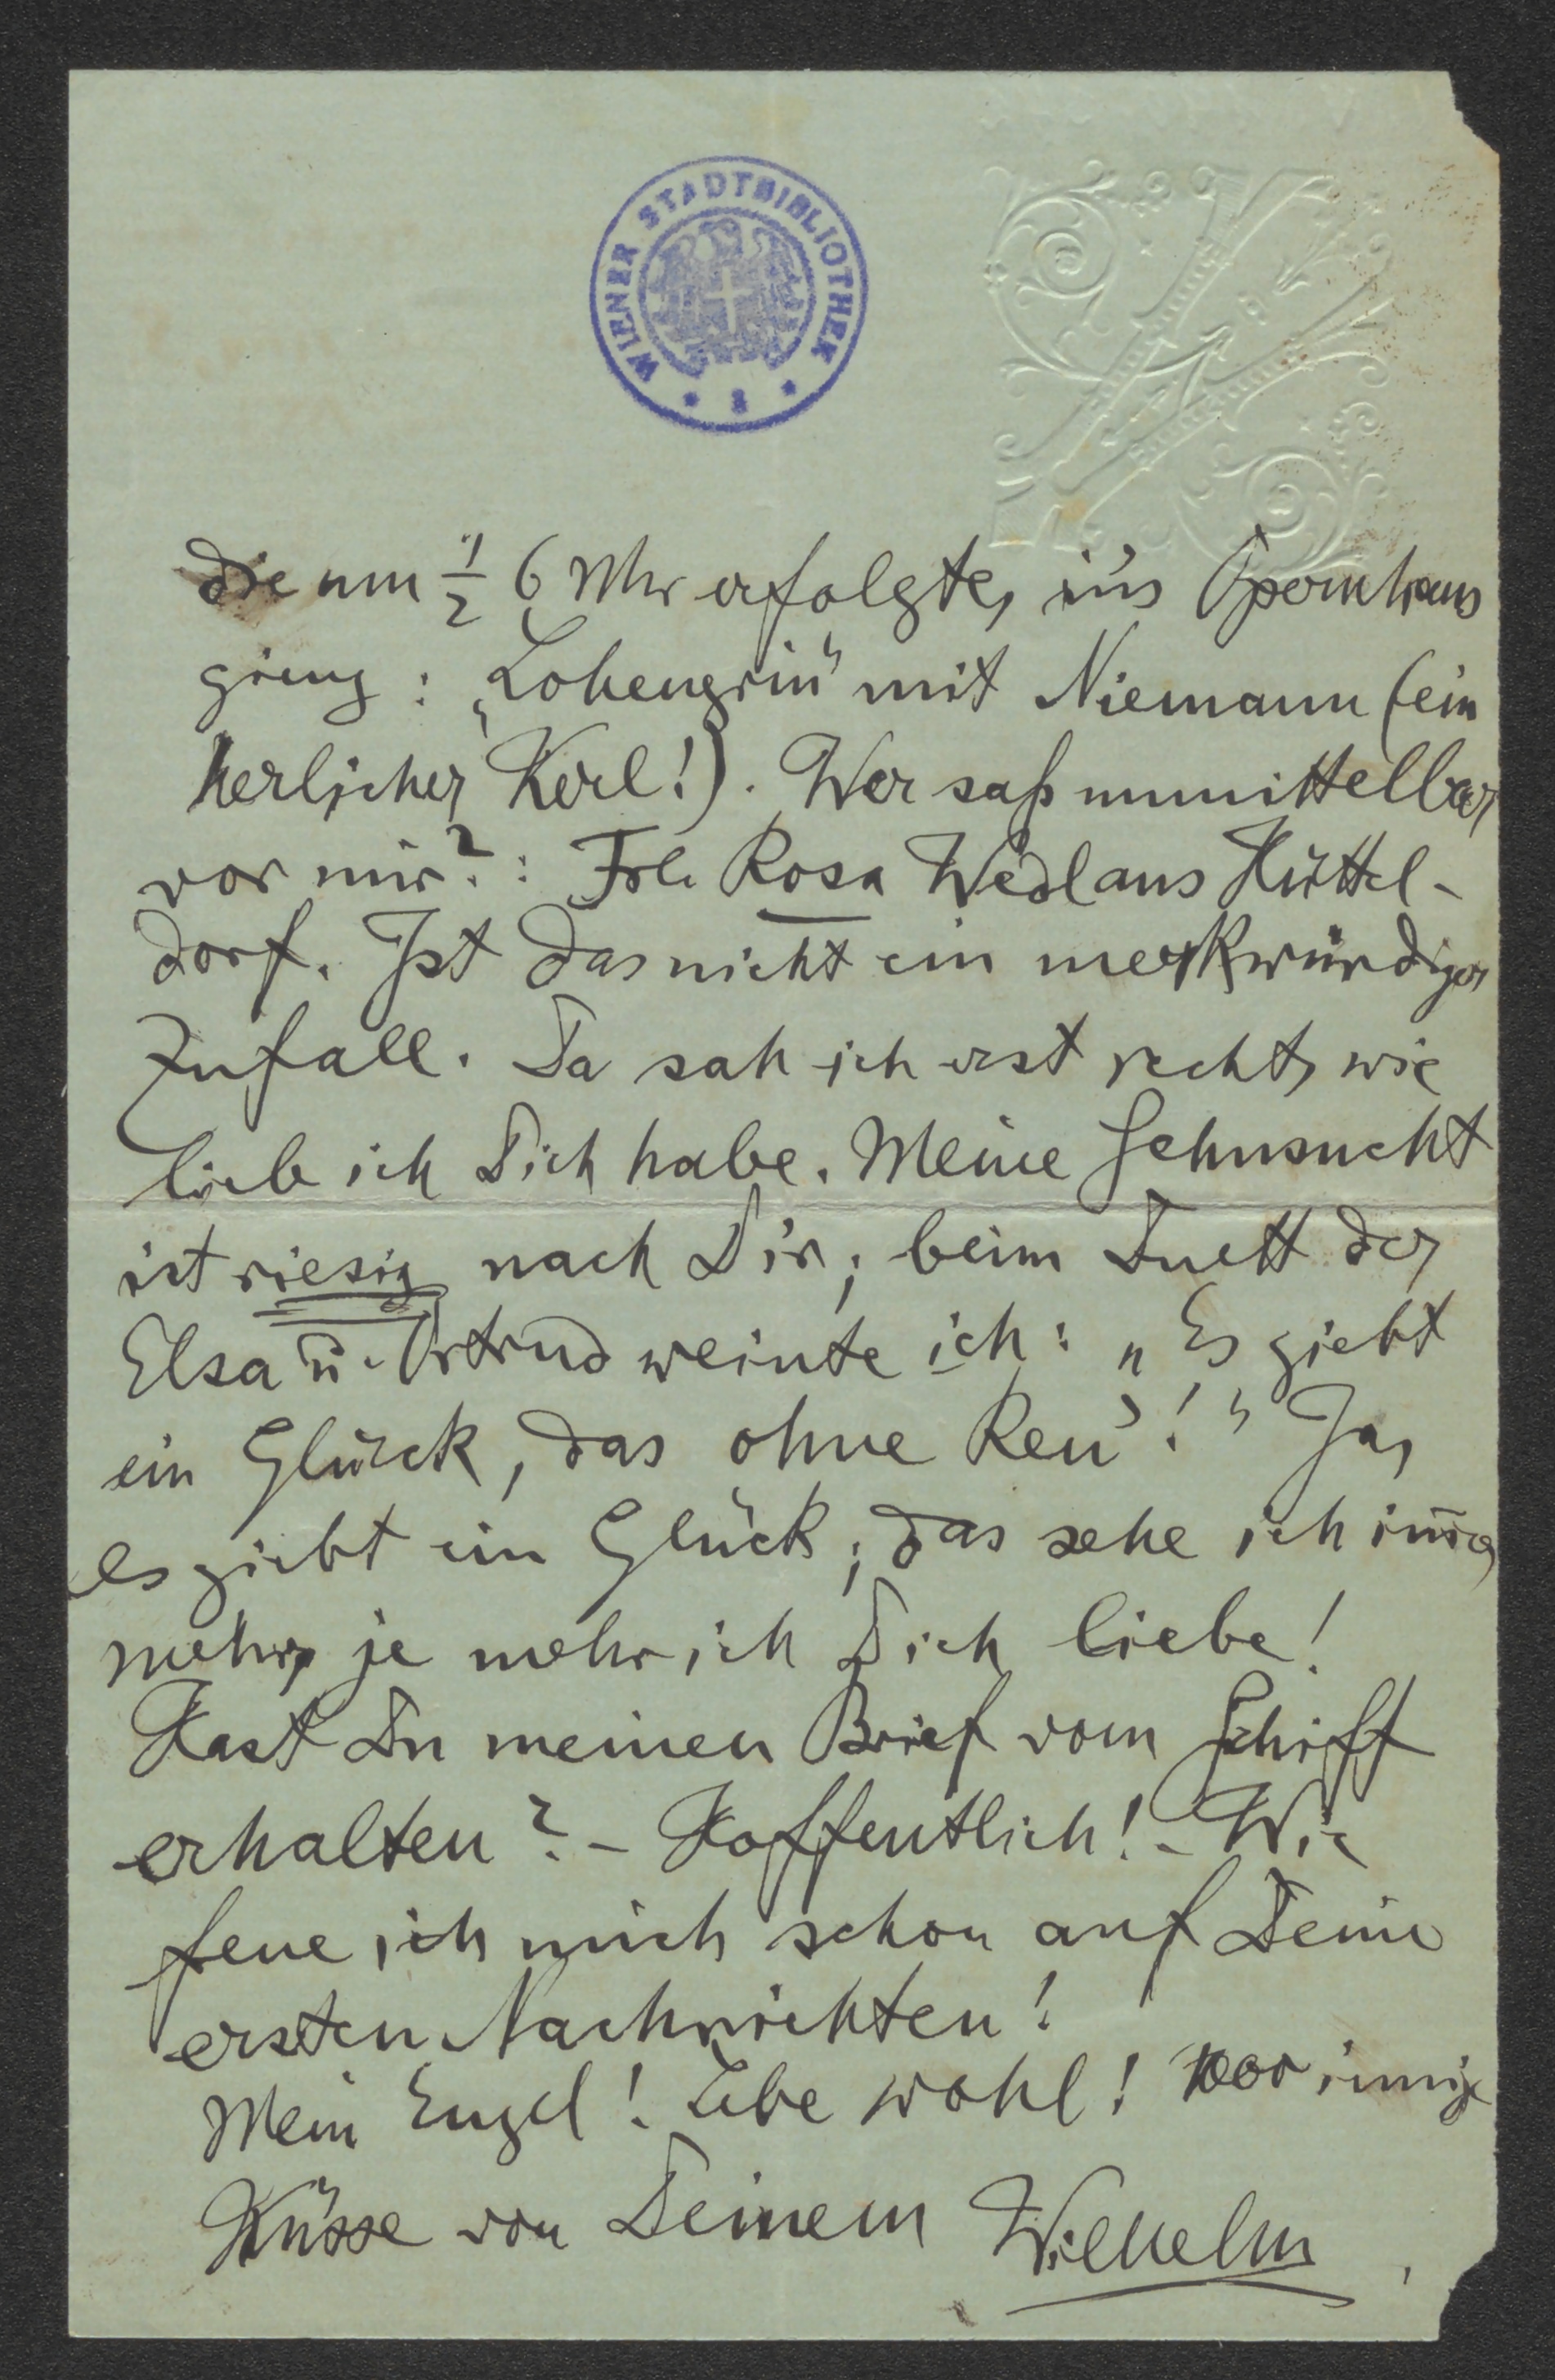 WIENER STADTBIBLIOTHEK
die um ½ 6 Uhr erfolgte, in's Opernhaus
gieng: „Lohengrin" mit Niemann (ein
herlicher Kerl!). Wer saß unmittelbar
vor mir?: Frl. Rosa Wedl aus Hüttel-
dorf. Ist das nicht ein merkwürdiger
Zufall. Da sah ich erst recht, wie
lieb ich Dich habe. Meine Sehnsucht
ist riesig nach Dir; beim Duett der
Elsa u. Ortrud weinte ich: „Es giebt
ein Glück, das ohne Reu'!" Ja,
es giebt ein Glück; das sehe ich im̅er
mehr, je mehr ich Dich liebe!
Hast Du meinen Brief vom Schiff
erhalten? – Hoffentlich! – Wie
feue ich mich schon auf Deine
ersten Nachrichten!
Mein Engel! Lebe wohl! 1000 innige
Küsse von Deinem Wilhelm